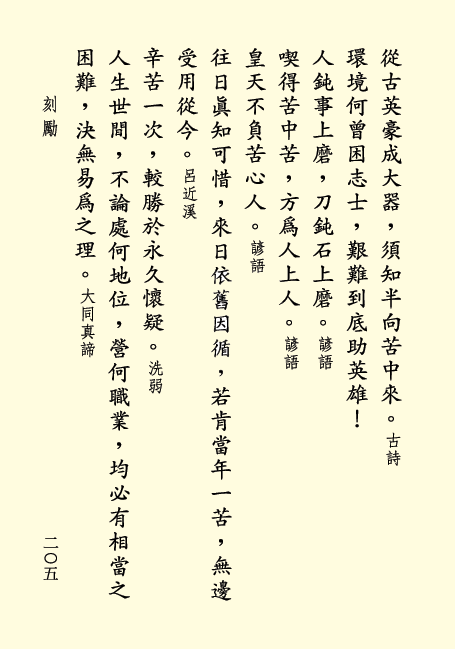 從古英豪成大器，須知半向苦中來。古詩
環境何曾困志士，艱難到底助英雄！
人鈍事上磨，刀鈍石上磨。諺語
喫得苦中苦，方爲人上人。諺語
皇天不負苦心人。諺語
往日眞知可惜，來日依舊因循，若肯當年一苦，無邊
受用從今。呂近溪
辛苦一次，較勝於永久懷疑。洗弱
人生世間，不論處何地位，營何職業，均必有相當之
困難，決無易爲之理。大同真諦
刻勵
二〇五